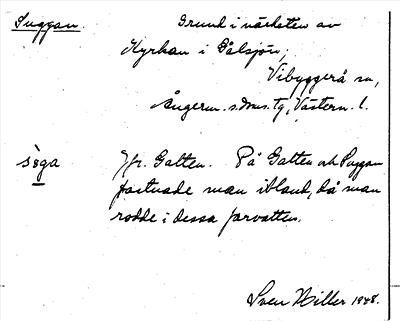 Suggan. Grund i närheten av
Kyrkan i Gålsjön,
Vibyggerå sn,
Ångerm. s. Dns. tg, Västern. l.
sòga Jfr. Galten. På Galten och Suggan
fastnade man ibland, då man
rodde i dessa farvatten.
Sven Hiller 1948.